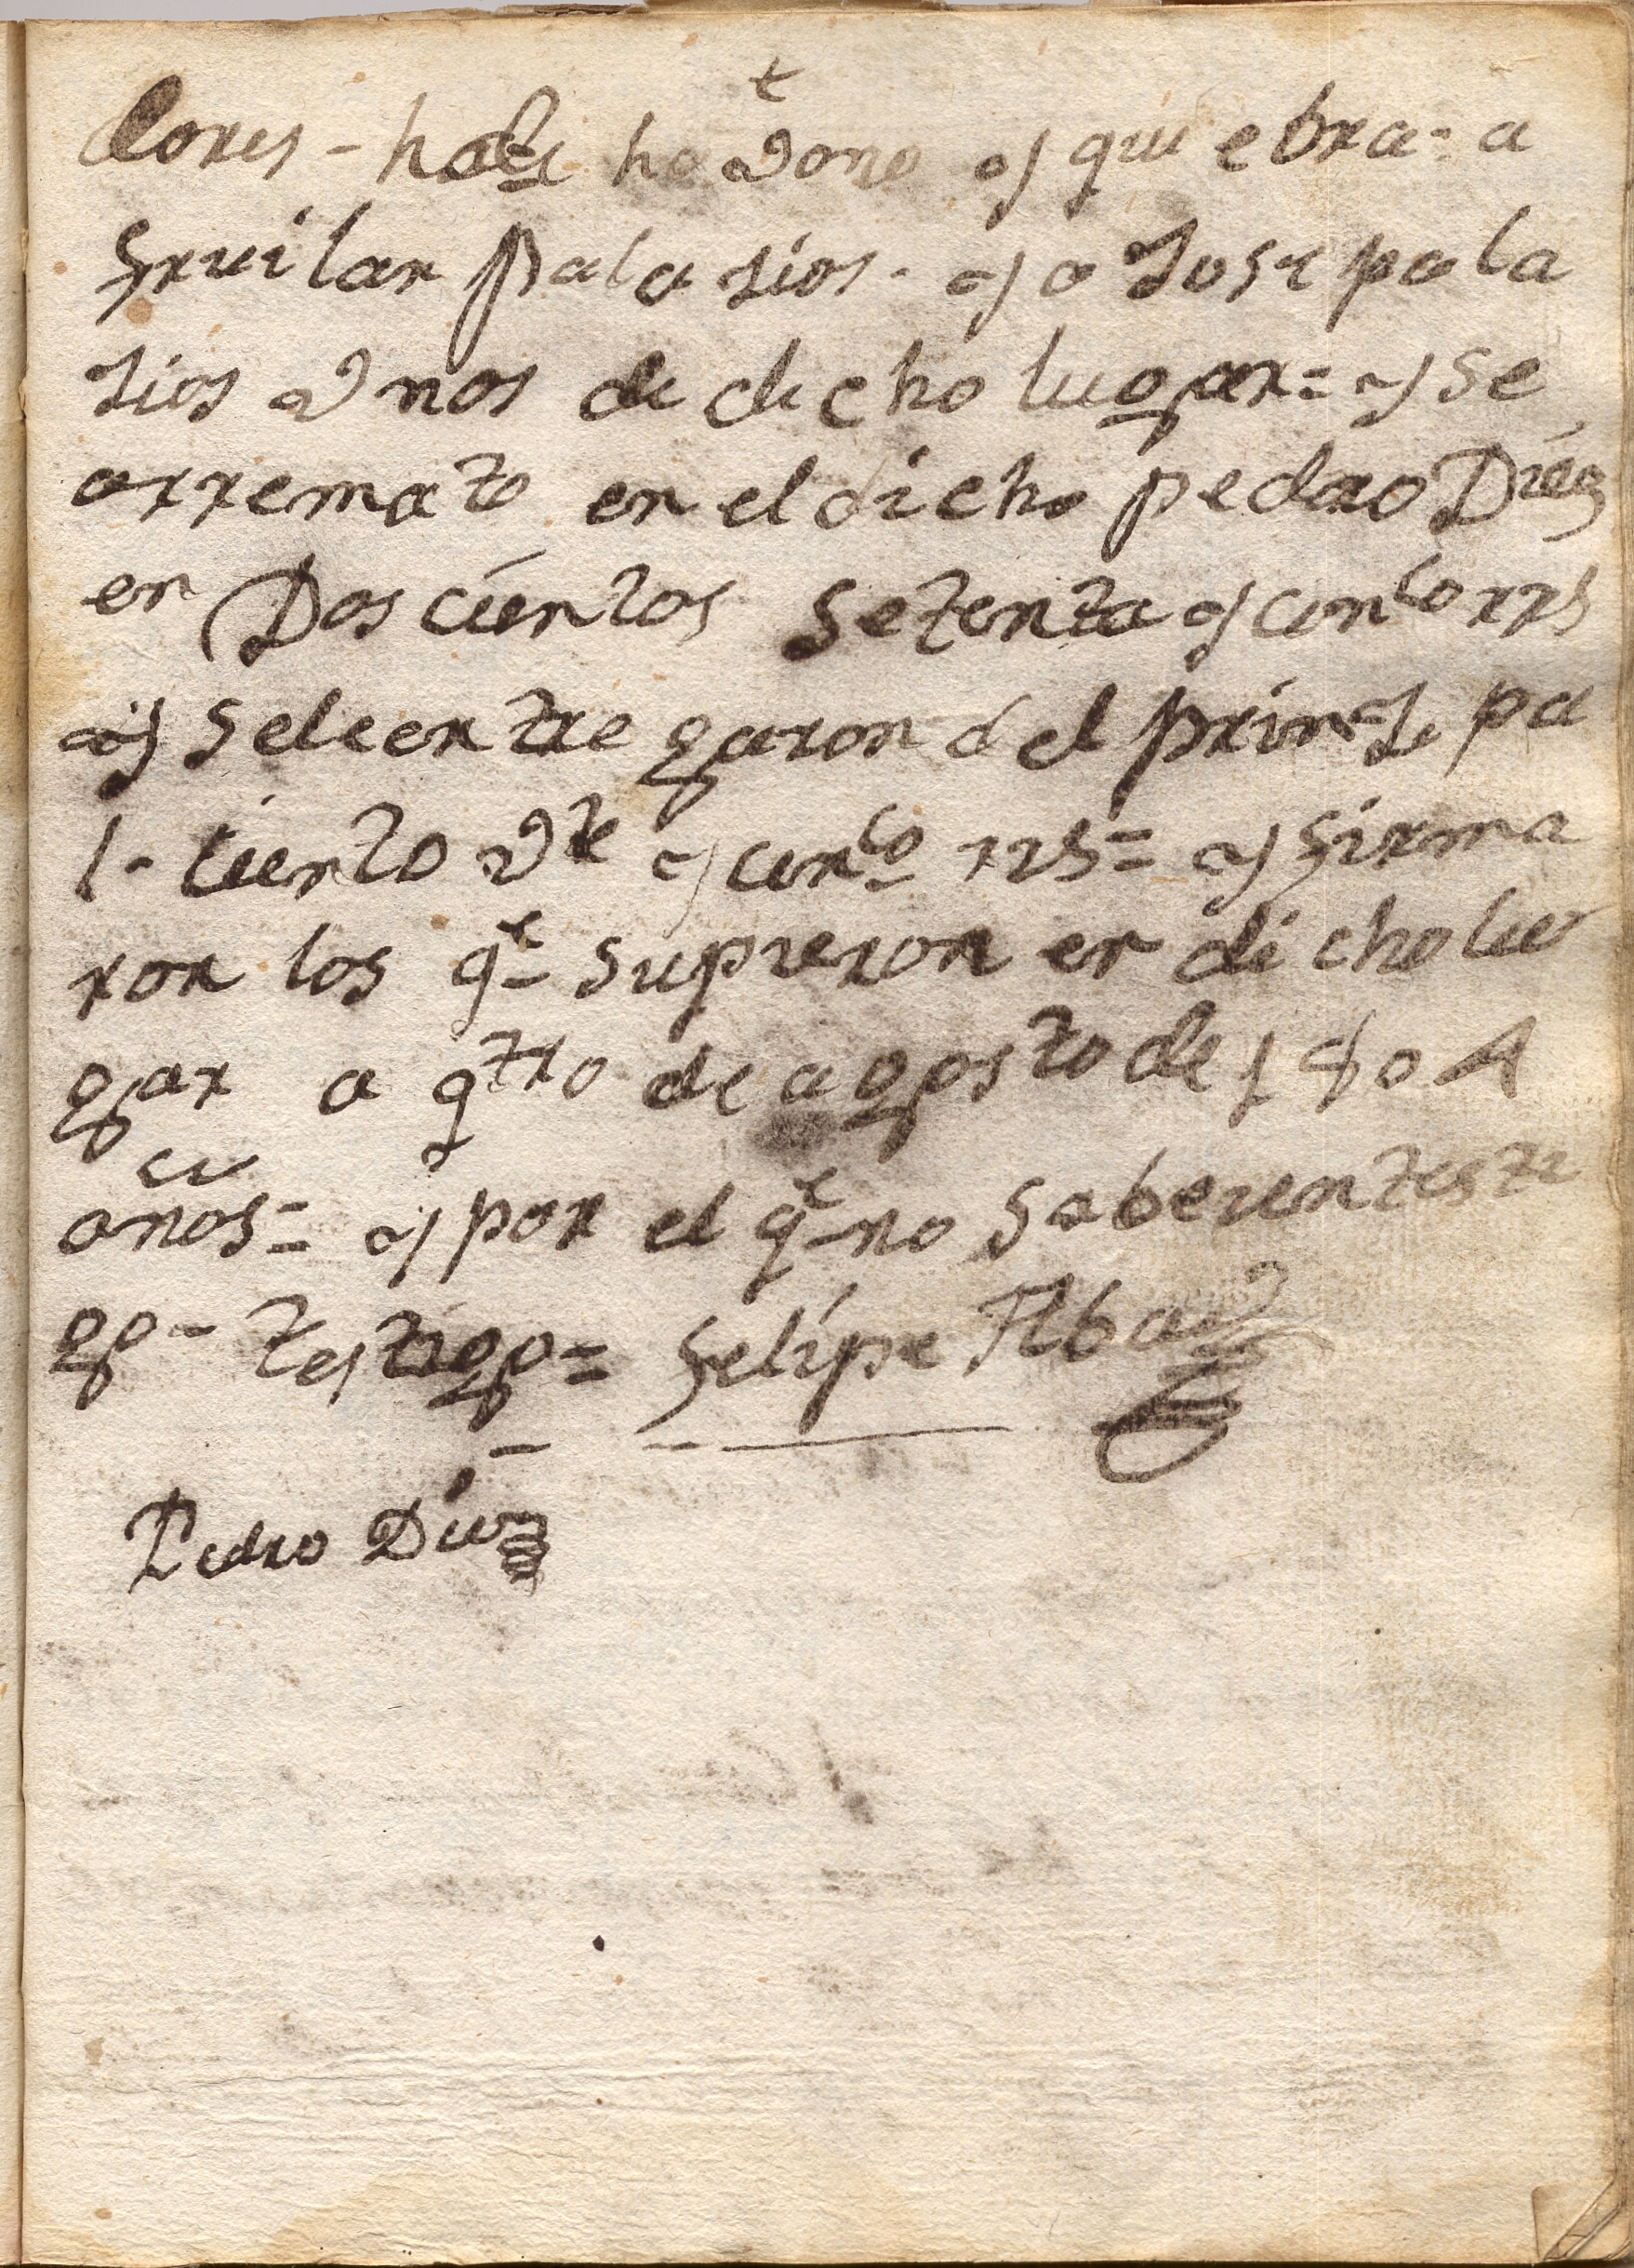 dores - ha de ho Vono y quiebra - a
fruilan palasios - y a Juse pala
sios Vnos de dicho lugar = y se
arremato en el dicho pedro Diez
en Doscientos setenta y cinco rrs
y sele entregaron del prinsipa
l - ciento Vte y cinco rrs = y firma
ron los qe supieron en dicho lu
gar a qtro de agosto de 1804
años = y por el qe no sabe un teste
go - testigo = felipe Alba
Pedro Diez